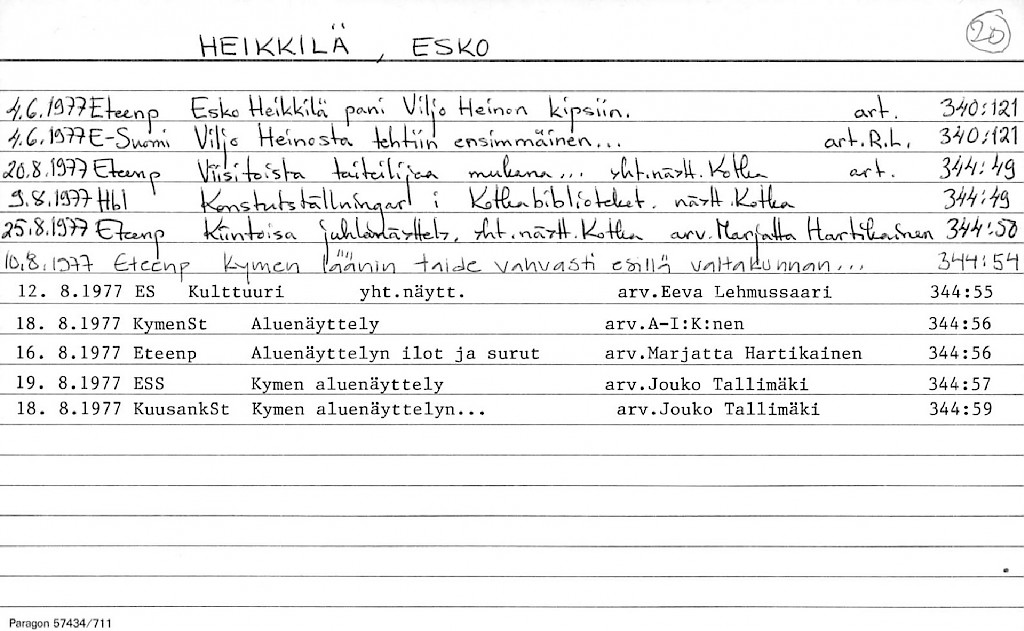 HEIKKILÄ, ESKO 20
4.6.1977 Eteenp Esko Heikkilä pani Viljo Heinon kipsiin. art. 340:121
4.6.1977 E-Suomi Viljo Heinosta tehtiin ensimmäinen... art.R.L. 340:121
20.8.1977 Eteenp Viisitoista taiteilijaa mukana... yht.näytt.Kotka art. 344:49
9.8.1977 Hbl Konstutställningar i Kotkabiblioteket. näytt.Kotka 344:49
25.8.1977 Eteenp Kiintoisa juhlanäyttely, yht.näytt.Kotka arv.Marjatta Hartikainen 344:50
10.8.1977 Eteenp Kymen läänin taide vahvasti esillä valtakunnan... 344:54
12. 8.1977 ES Kulttuuri yht.näytt. arv.Eeva Lehmussaari 344:55
18. 8.1977 KymenSt Aluenäyttely arv.A-I:K:nen 344:56
16. 8.1977 Eteenp Aluenäyttelyn ilot ja surut arv.Marjatta Hartikainen 344:56
19. 8.1977 ESS Kymen aluenäyttely arv.Jouko Tallimäki 344:57
18. 8.1977 KuusankSt Kymen aluenäyttelyn... arv.Jouko Tallimäki 344:59
Paragon 57434/711